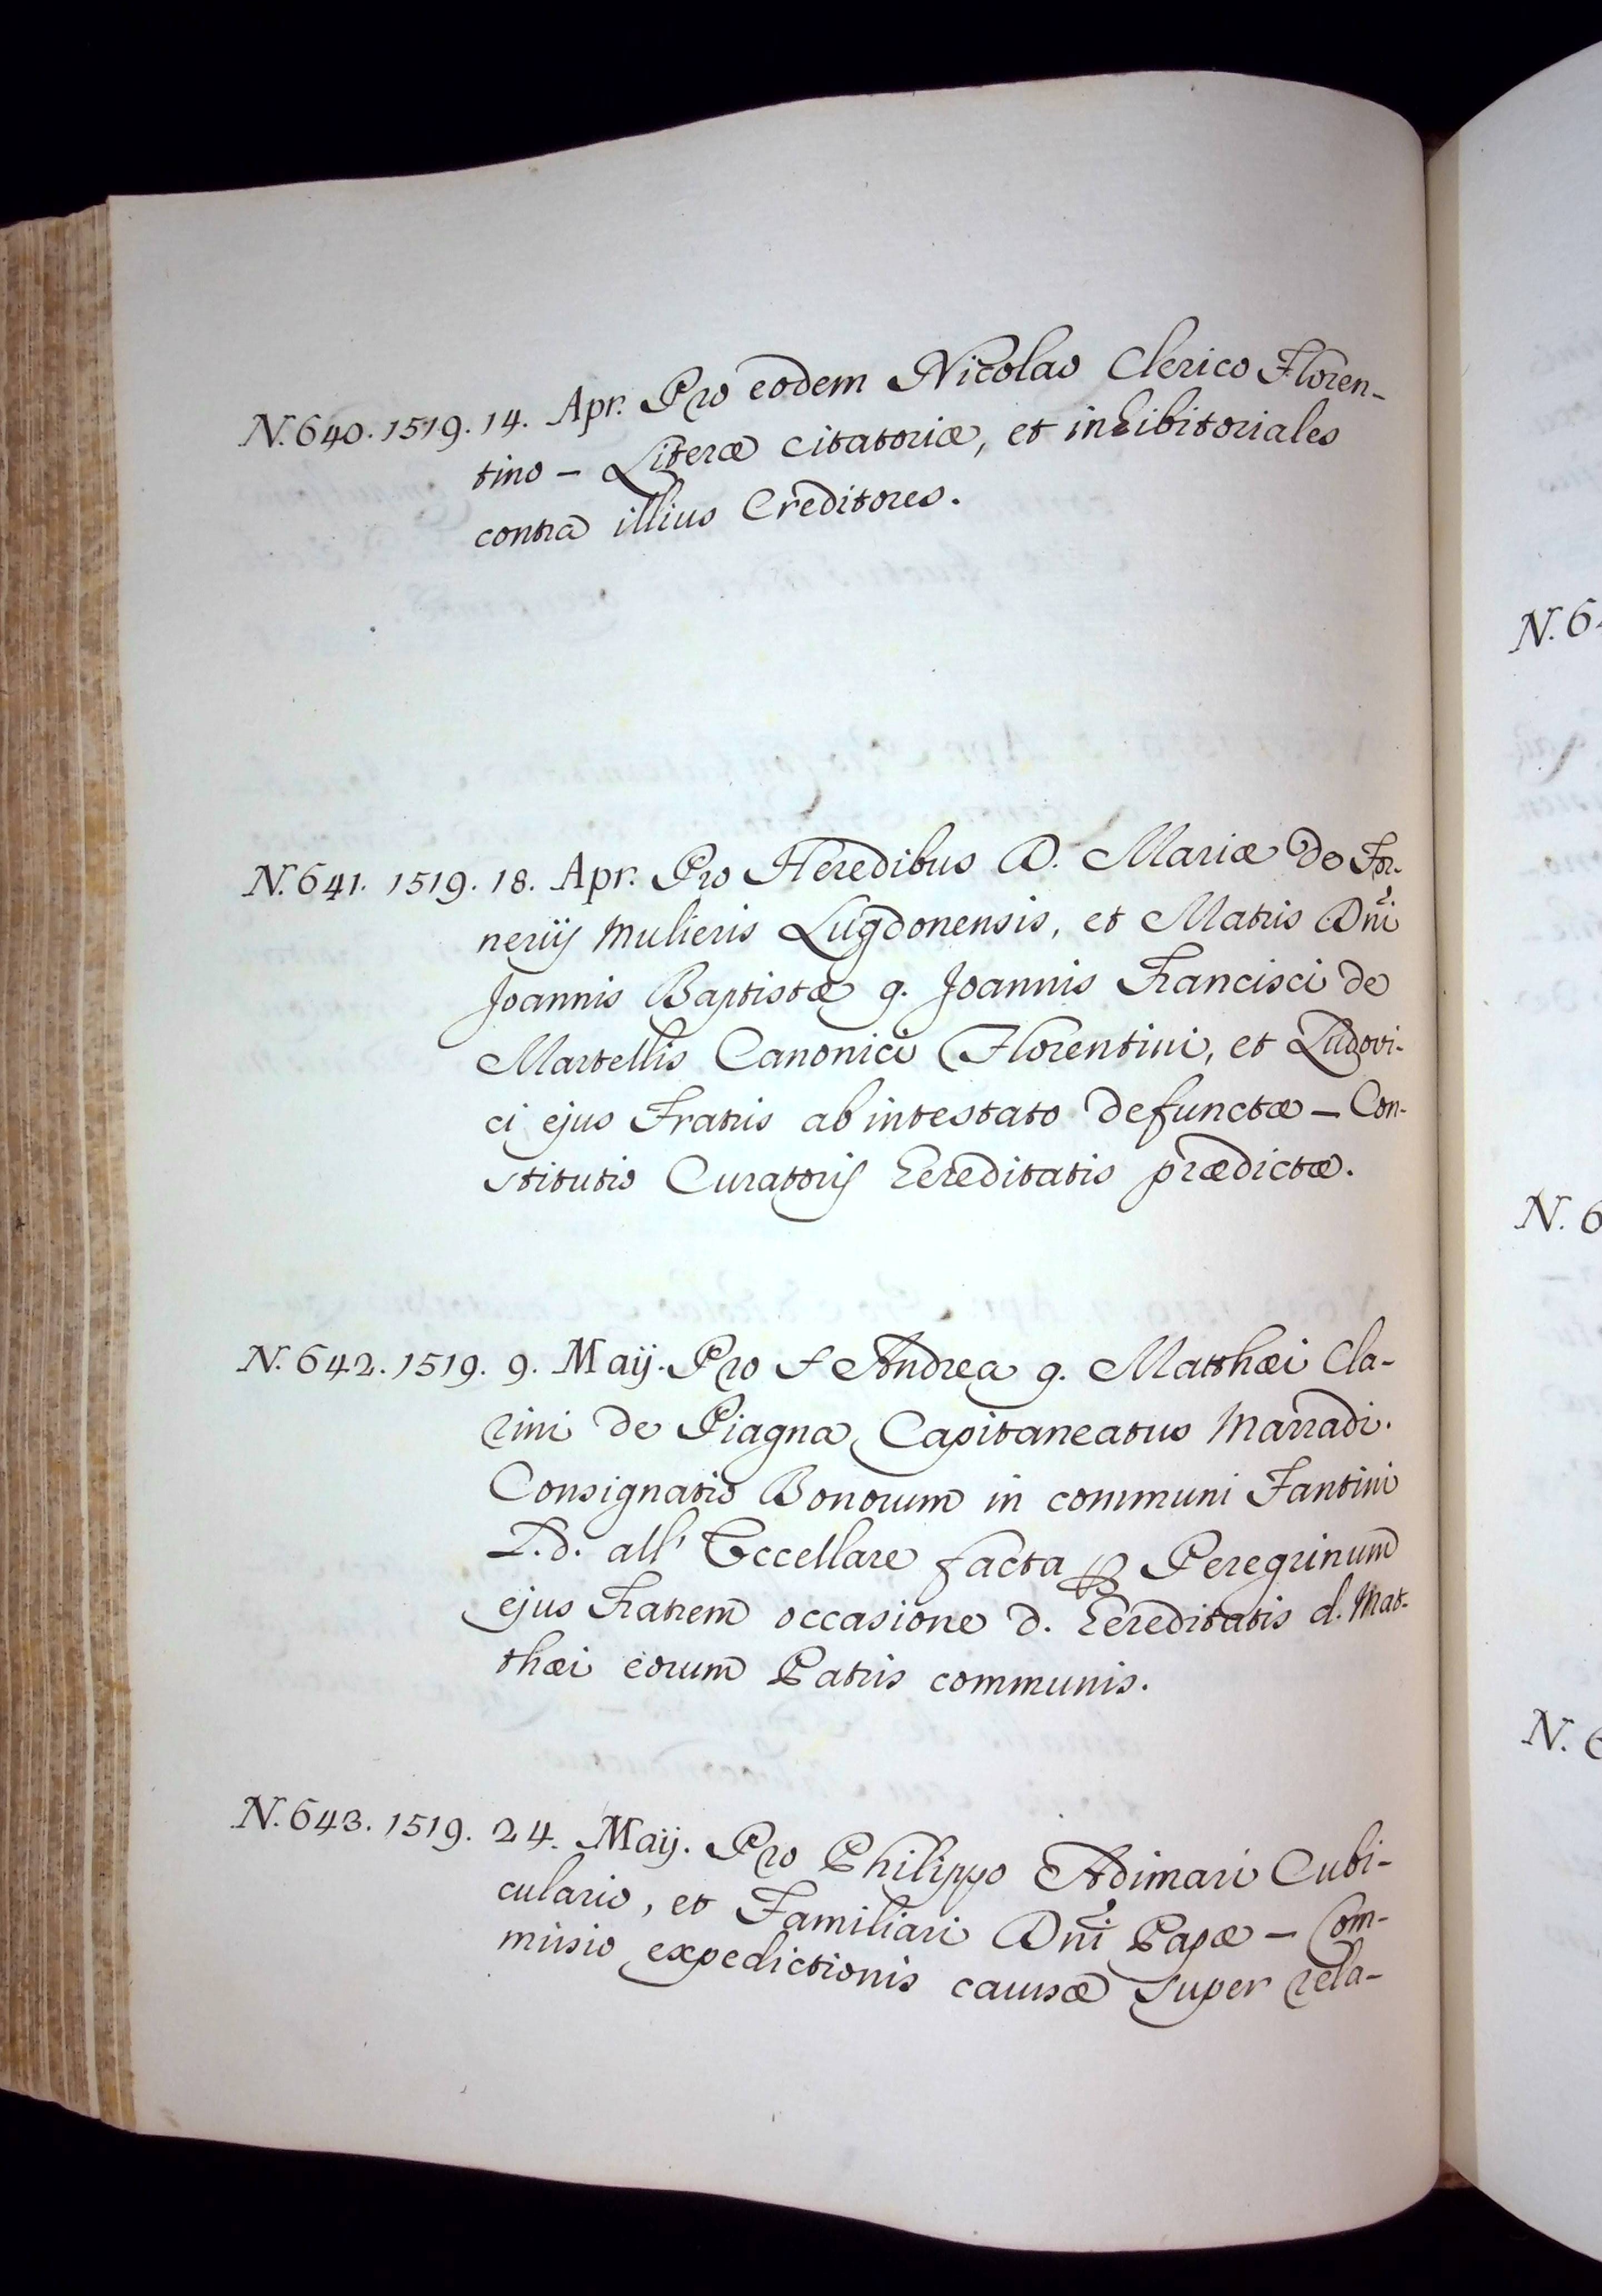 N. 640. 1519. 14. Apr. Pro eodem Nicolao Clerico Floren-
tino - Literæ citatoriæ, et inhibitoriales
contra illius Creditores.
N. 641. 1519. 18. Apr. Pro Heredibus D. Mariæ de For-
nerijs Mulieris Lugdonensis, et Matris Dñi
Joannis Baptistæ q. Joannis Francisci de
Martellis Canonici Florentini, et Ludovi-
ci ejus Fratris ab intestato defunctæ - Con-
stitutio Curatoris hereditatis prædictæ.
N. 642. 1519. 9. Maij. Pro Andrea q. Matthæi Cla-
rini de Piagna Capitaneatus Marradi.
Consignatio Bonorum in communi Fantini
L.d. all' Uccellare facta ꝑ Peregrinum
ejus Fratrem occasione d. hereditatis d. Mat-
thæi eorum Patris communis.
N. 643. 1519. 24. Maij. Pro Philippo Adimari Cubi-
culario, et Familiari Dñi Papæ - Com-
missio expedictionis causæ super rela-
N. 6
N. 6
N. 6